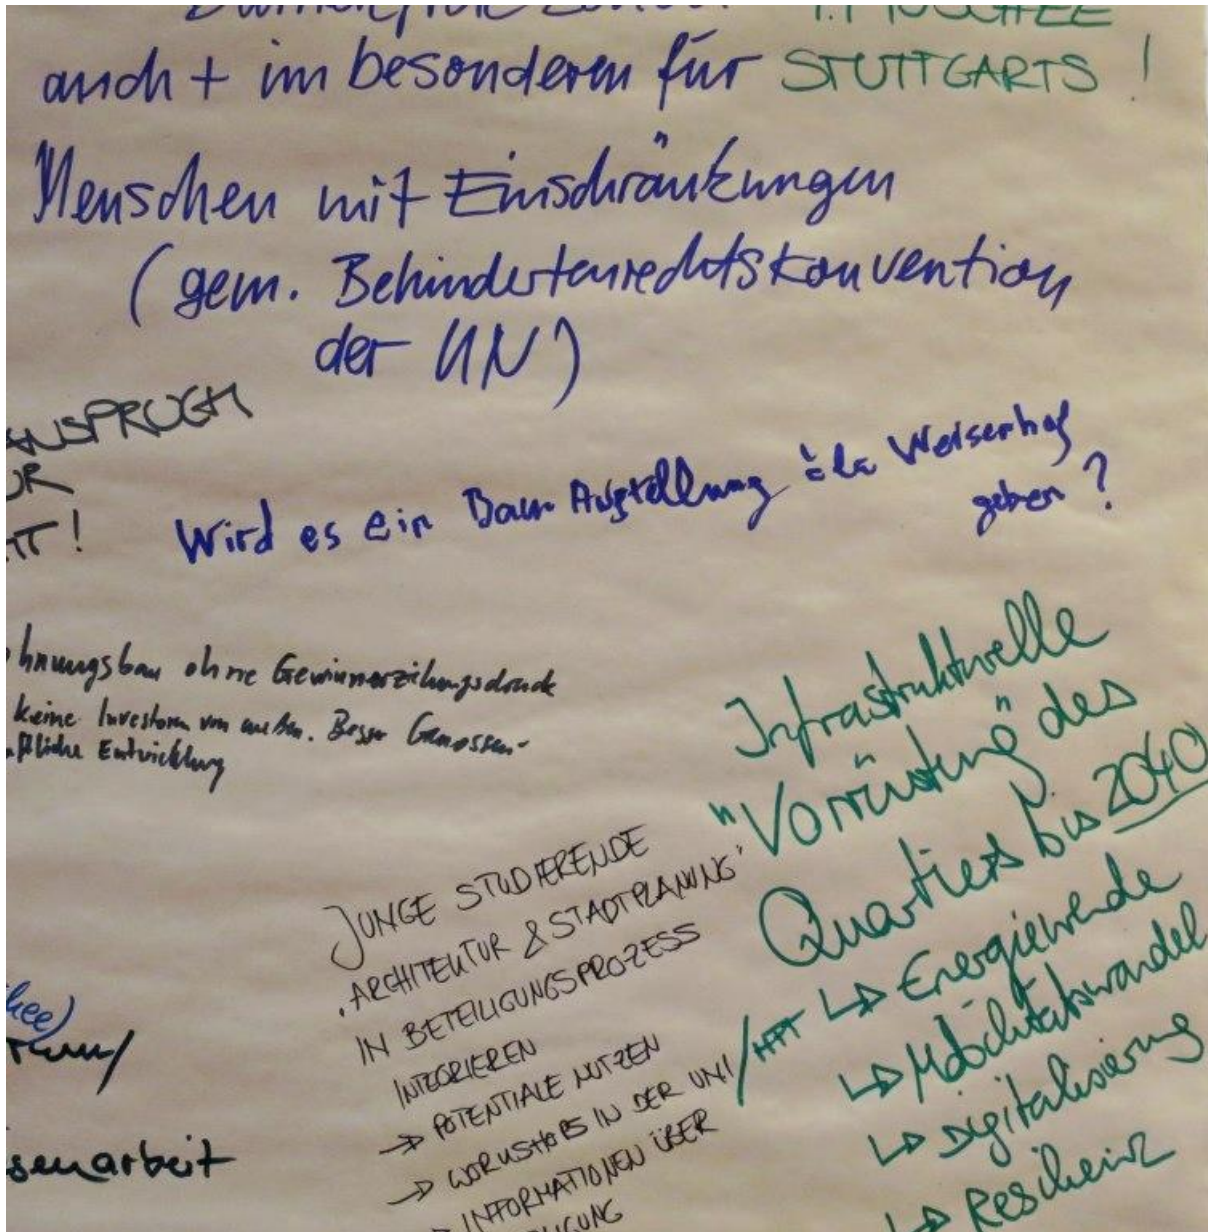 1. MOSCHEE
STUTTGARTS!
auch + im besonderen für
Menschen mit Einschränkungen
(gem. Behindertenrechtskonvention
der UN)
ANSPRUCH
!
Wird es ein Bau Austellung àla Weisenhof
geben?
hnungsbau ohne Gewinnerzielungsdruck
keine Investoren von außen. Besser Genossen-
Entwicklung
Infrastrukturelle
"Vorrüstung" des
Quartiers bis 2040
↳ Energiewende
↳ Mobilitätswandel
↳ Digitalisierung
↳ Resilienz
JUNGE STUDIERENDE
"ARCHITEKTUR & STADTPLANUNG"
IN BETEILIGUNGSPROZESS
INTEGRIEREN
→ POTENTIALE NUTZEN
→ WORKSHOPS IN DER UNI
→ INFORMATIONEN ÜBER
senarbeit